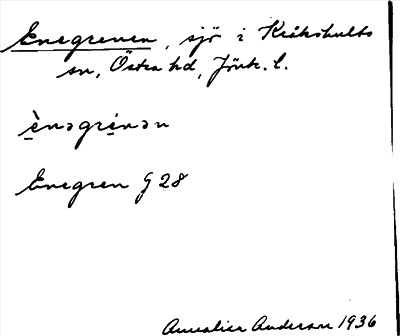 Enegrenen, sjö i Kråkshults
sn, Östra hd, Jönk. l.
ènəgrenən
Enegren G 28
Annalisa Anderson 1936